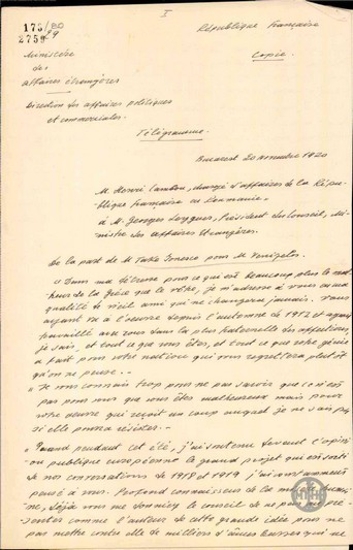 I
173/80
2759 29
République française
Ministère
des
affaires étrangères
Copie
Direction des affaires politiques
et commerciales
Télégramme
Bucarest 20 novembre 1920
M. Henri Cambon, chargé d'affaires de la Répu-
blique française en Roumanie
à M. Georges Leygues, Président du Conseil, Mi-
nistre des affaires étrangères.
De la part de M. Také Ionesco pour M. Venizelos
pour ce qui est beaucoup plus le mal-
heur de la Grèce que le vôtre, je m'adresse à vous en ma
qualité de vieil ami qui ne changera jamais. Vous
ayant vu à l'œuvre depuis l'automne de 1912 et ayant
travaillé avec vous dans la plus fraternelle des affections,
je sais, et tout ce que vous êtes, et tout ce que votre génie
a fait pour votre nation qui vous regrettera plutôt
qu'on ne pense.
"Je vous connais trop pour ne pas savoir que ce n'est
pas pour vous que vous êtes malheureux mais pour
votre œuvre qui reçoit un coup auquel je ne sais pas
si elle pourra résister.
"Quand pendant cet été, j'ai soutenu devant l'opini-
on publique européenne le grand projet qui est sorti
de nos conversations de 1918 et 1919 j'ai
pensé à vous. Profond connaisseur de la
déjà vous me donniez le conseil de ne pas me pré-
senter comme l'auteur de cette grande idée pour ne
pas mettre contre elle de millions d'âmes qui ne